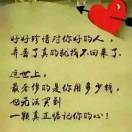 好好珍惜对你好的人，
弄丢了真的就找不回来了.
这世上，
最合作的是你用多少钱，
也无法买到
一颗真正惦记你的心！